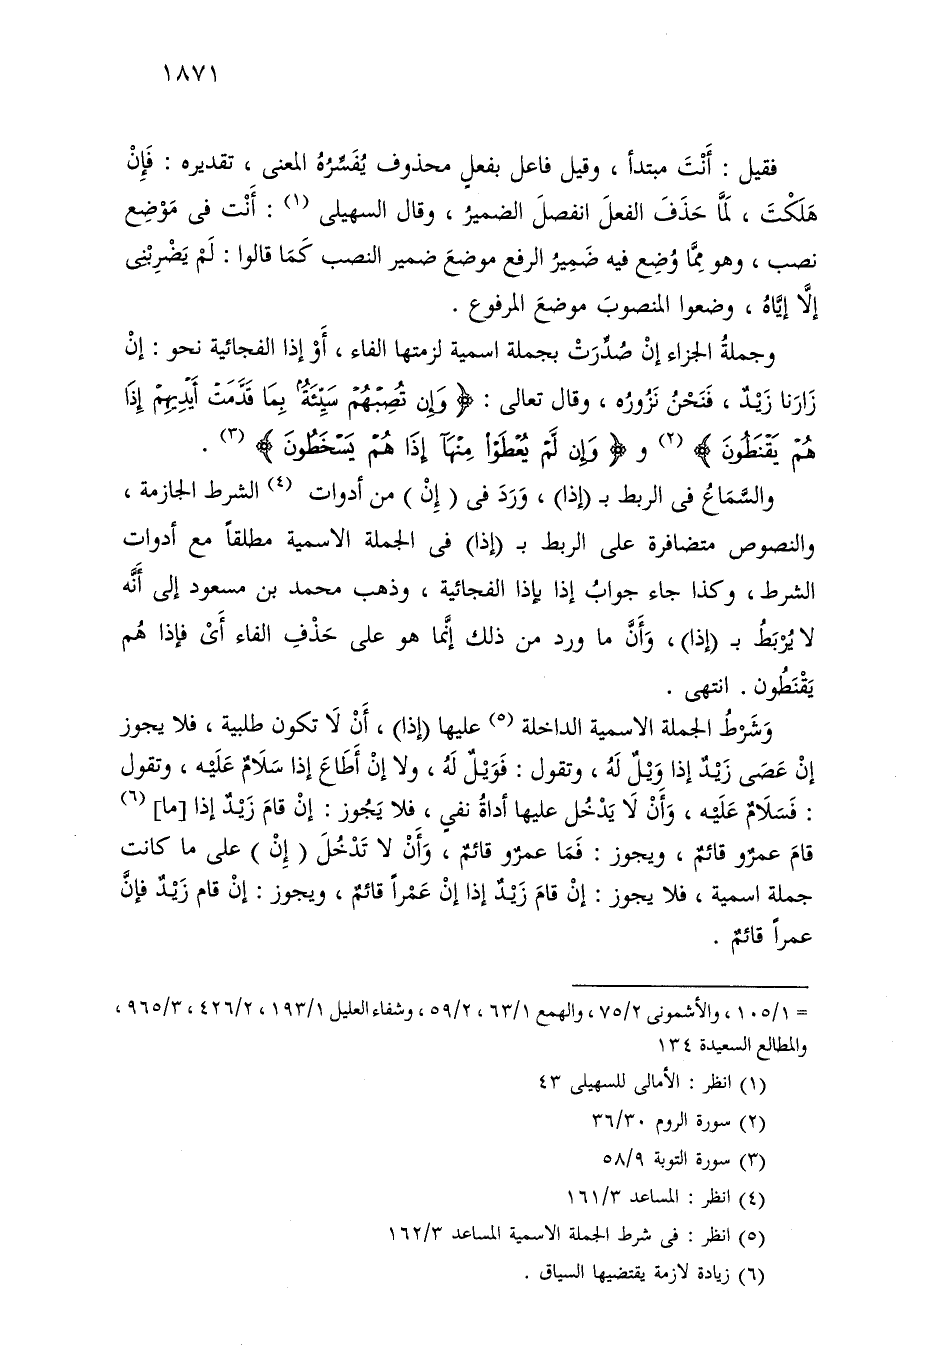 ١٨٧١
فقيل : أَنْتَ مبتدأ ، وقيل فاعل بفعلٍ محذوف يُفَسِّرُهُ المعنى ، تقديره : فَإِنْ
هَلَكْتَ ، لَمَّا حَذَفَ الفعلَ انفصلَ الضميرُ ، وقال السهيلى (١) : أَنْت فى مَوْضِع
نصب ، وهو مِمَّا وُضِع فيه ضَمِيرُ الرفع موضعَ ضمير النصب كَمَا قالوا : لَمْ يَضْرِبْنِى
إلَّا إيَّاهُ ، وضعوا المنصوبَ موضعَ المرفوع .
وجملةُ الجزاء إنْ صُدِّرَتْ بجملة اسمية لزمتها الفاء ، أَوْ إذا الفجائية نحو : إنْ
زَارَنا زَيْدٌ ، فَنَحْنُ نَزُورُه ، وقال تعالى : ﴿ وَإِن تُصِبْهُمْ سَيِّئَةٌ بِمَا قَدَّمَتْ أَيْدِيهِمْ إِذَا
هُمْ يَقْنَطُونَ ﴾ (٢) و ﴿ وَإِن لَّمْ يُعْطَوْا۟ مِنْهَآ إِذَا هُمْ يَسْخَطُونَ ﴾ (٣) .
والسَّمَاعُ فى الربط بـ (إذا) ، وَرَدَ فى ( إنْ ) من أدوات (٤) الشرط الجازمة ،
والنصوص متضافرة على الربط بـ (إذا) فى الجملة الاسمية مطلقاً مع أدوات
الشرط ، وكذا جاء جوابُ إذا بإذا الفجائية ، وذهب محمد بن مسعود إلى أَنَّه
لا يُرْبَطُ بـ (إذا)، وَأَنَّ ما ورد من ذلك إنَّما هو على حَذْفِ الفاء أَىْ فإذا هُم
يَقْنَطُون . انتهى .
وَشَرْطُ الجملة الاسمية الداخلة (٥) عليها (إذا) ، أَنْ لَا تكون طلبية ، فلا يجوز
إنْ عَصَى زَيْدٌ إذا وَيْلٌ لَهُ ، وتقول : فَوَيْلٌ لَهُ ، ولا إنْ أَطَاعَ إذا سَلَامٌ عَلَيْه ، وتقول
: فَسَلَامٌ عَلَيْه ، وَأَنْ لَا يَدْخُل عليها أداةُ نفيٍ ، فلا يَجُوز : إنْ قامَ زَيْدٌ إذا [ما] (٦)
قامَ عمرٌو قائمٌ ، ويجوز : فَمَا عمرٌو قائمٌ ، وَأَنْ لا تَدْخُلَ ( إنْ ) على ما كانت
جملة اسمية ، فلا يجوز : إنْ قامَ زَيْدٌ إذا إنْ عَمْراً قائمٌ ، ويجوز : إنْ قام زَيْدٌ فإنَّ
عمراً قائمٌ .
= ١٠٥/١ ، والأشمونى ٧٥/٢ ، والهمع ٦٣/١ ، ٥٩/٢ ، وشفاء العليل ١٩٣/١ ، ٤٢٦/٢ ، ٩٦٥/٣ ،
والمطالع السعيدة ١٣٤
(١) انظر : الأمالى للسهيلى ٤٣
(٢) سورة الروم ٣٦/٣٠
(٣) سورة التوبة ٥٨/٩
(٤) انظر : المساعد ١٦١/٣
(٥) انظر : فى شرط الجملة الاسمية المساعد ١٦٢/٣
(٦) زيادة لازمة يقتضيها السياق .